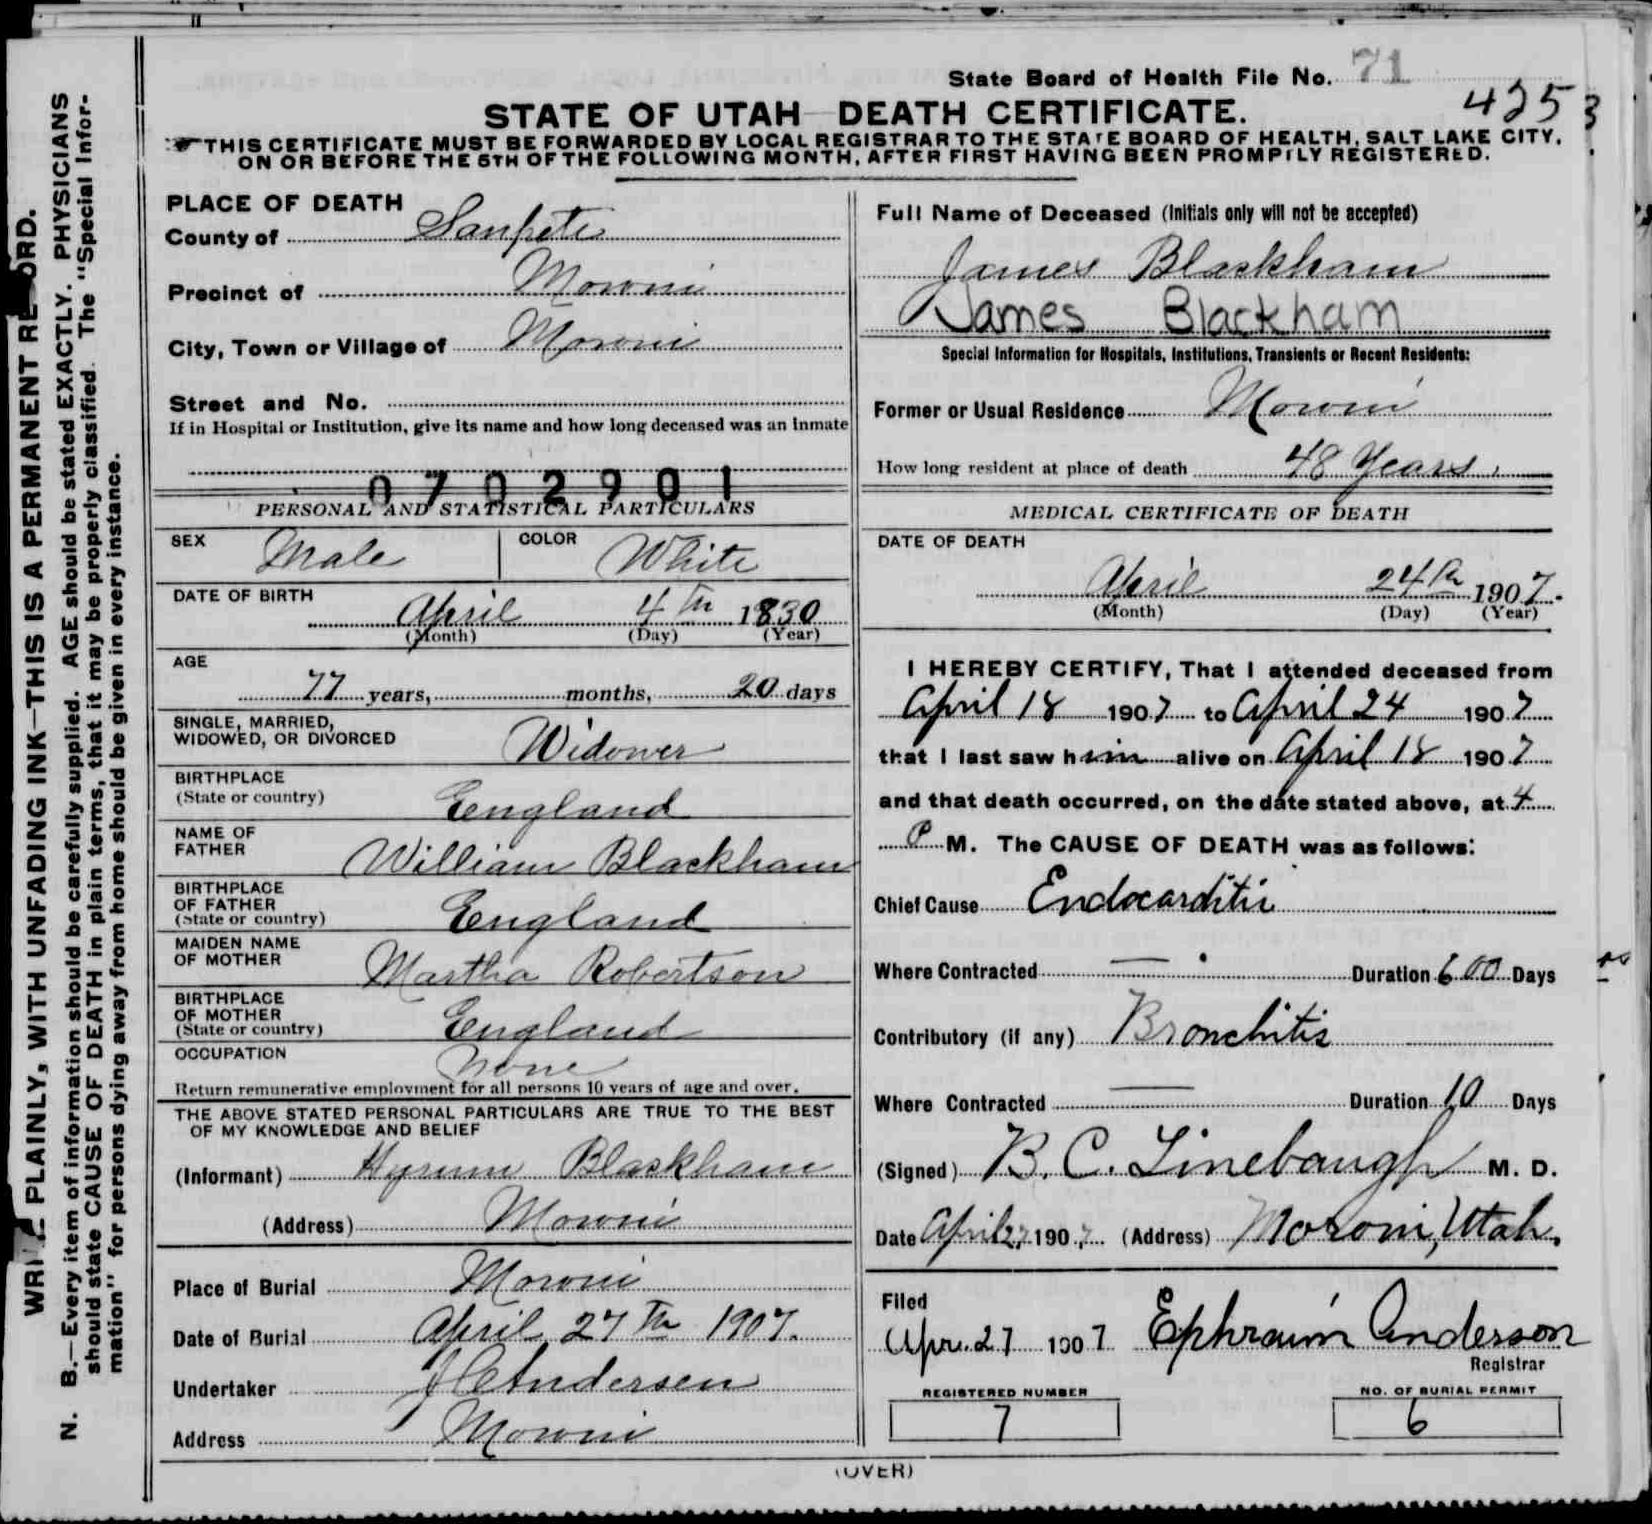 State Board of Health File No. 71
4253
STATE OF UTAH DEATH CERTIFICATE.
THIS CERTIFICATE MUST BE FORWARDED BY LOCAL REGISTRAR TO THE STATE BOARD OF HEALTH, SALT LAKE CITY,
ON OR BEFORE THE 5TH OF THE FOLLOWING MONTH, AFTER FIRST HAVING BEEN PROMPTLY REGISTERED.
WRITE PLAINLY, WITH UNFADING INK—THIS IS A PERMANENT RECORD.
N. B.—Every item of information should be carefully supplied. AGE should be stated EXACTLY. PHYSICIANS
should state CAUSE OF DEATH in plain terms, that it may be properly classified. The "Special Infor-
mation" for persons dying away from home should be given in every instance.
PLACE OF DEATH
County of Sanpete
Precinct of Moroni
City, Town or Village of Moroni
Street and No.
If in Hospital or Institution, give its name and how long deceased was an inmate
0702901
PERSONAL AND STATISTICAL PARTICULARS
SEX Male COLOR White
DATE OF BIRTH
April 4th 1830
(Month) (Day) (Year)
AGE
77 years, months, 20 days
SINGLE, MARRIED,
WIDOWED, OR DIVORCED Widower
BIRTHPLACE
(State or country) England
NAME OF
FATHER William Blackham
BIRTHPLACE
OF FATHER
(State or country) England
MAIDEN NAME
OF MOTHER Martha Robertson
BIRTHPLACE
OF MOTHER
(State or country) England
OCCUPATION None
Return remunerative employment for all persons 10 years of age and over.
THE ABOVE STATED PERSONAL PARTICULARS ARE TRUE TO THE BEST
OF MY KNOWLEDGE AND BELIEF
(Informant) Hyrum Blackham
(Address) Moroni
Place of Burial Moroni
Date of Burial April 27th 1907.
Undertaker J C Andersen
Address Moroni
Full Name of Deceased (Initials only will not be accepted)
James Blackham
James Blackham
Special Information for Hospitals, Institutions, Transients or Recent Residents:
Former or Usual Residence Moroni
How long resident at place of death 48 Years.
MEDICAL CERTIFICATE OF DEATH
DATE OF DEATH
April 24th 1907.
(Month) (Day) (Year)
I HEREBY CERTIFY, That I attended deceased from
April 18 1907 to April 24 1907
that I last saw him alive on April 18 1907
and that death occurred, on the date stated above, at 4
P M. The CAUSE OF DEATH was as follows:
Chief Cause Endocarditis
Where Contracted — Duration 600 Days
Contributory (if any) Bronchitis
Where Contracted — Duration 10 Days
(Signed) B. C. Linebaugh M. D.
Date April 27 1907 (Address) Moroni, Utah.
Filed
Apr. 27 1907 Ephraim Anderson
Registrar
REGISTERED NUMBER
7
NO. OF BURIAL PERMIT
6
(OVER)